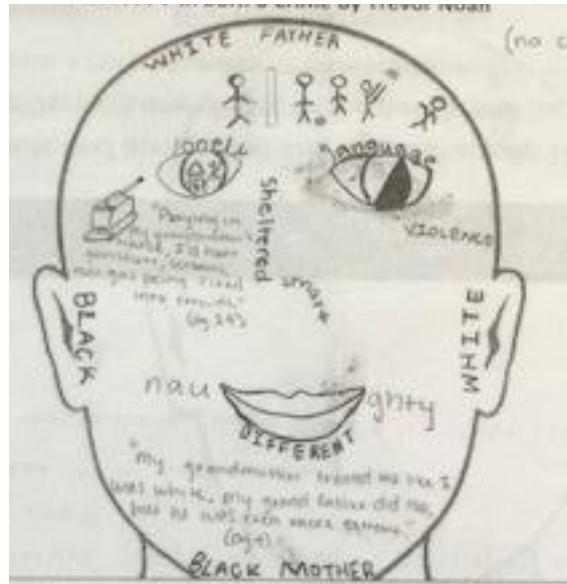 Born a Crime by Trevor Noah
(no c
WHITE FATHER
lonely
"Language"
sheltered
smart
VIOLENCE
"Playing in
my grandmother's
I'd hear
gunshots, screams,
tear gas being fired
into crowds."
(pg 24)
BLACK
WHITE
nau ghty
DIFFERENT
"My grandmother treated me like I
was white. My grandfather did too,
but he was even more extreme."
(pg
BLACK MOTHER